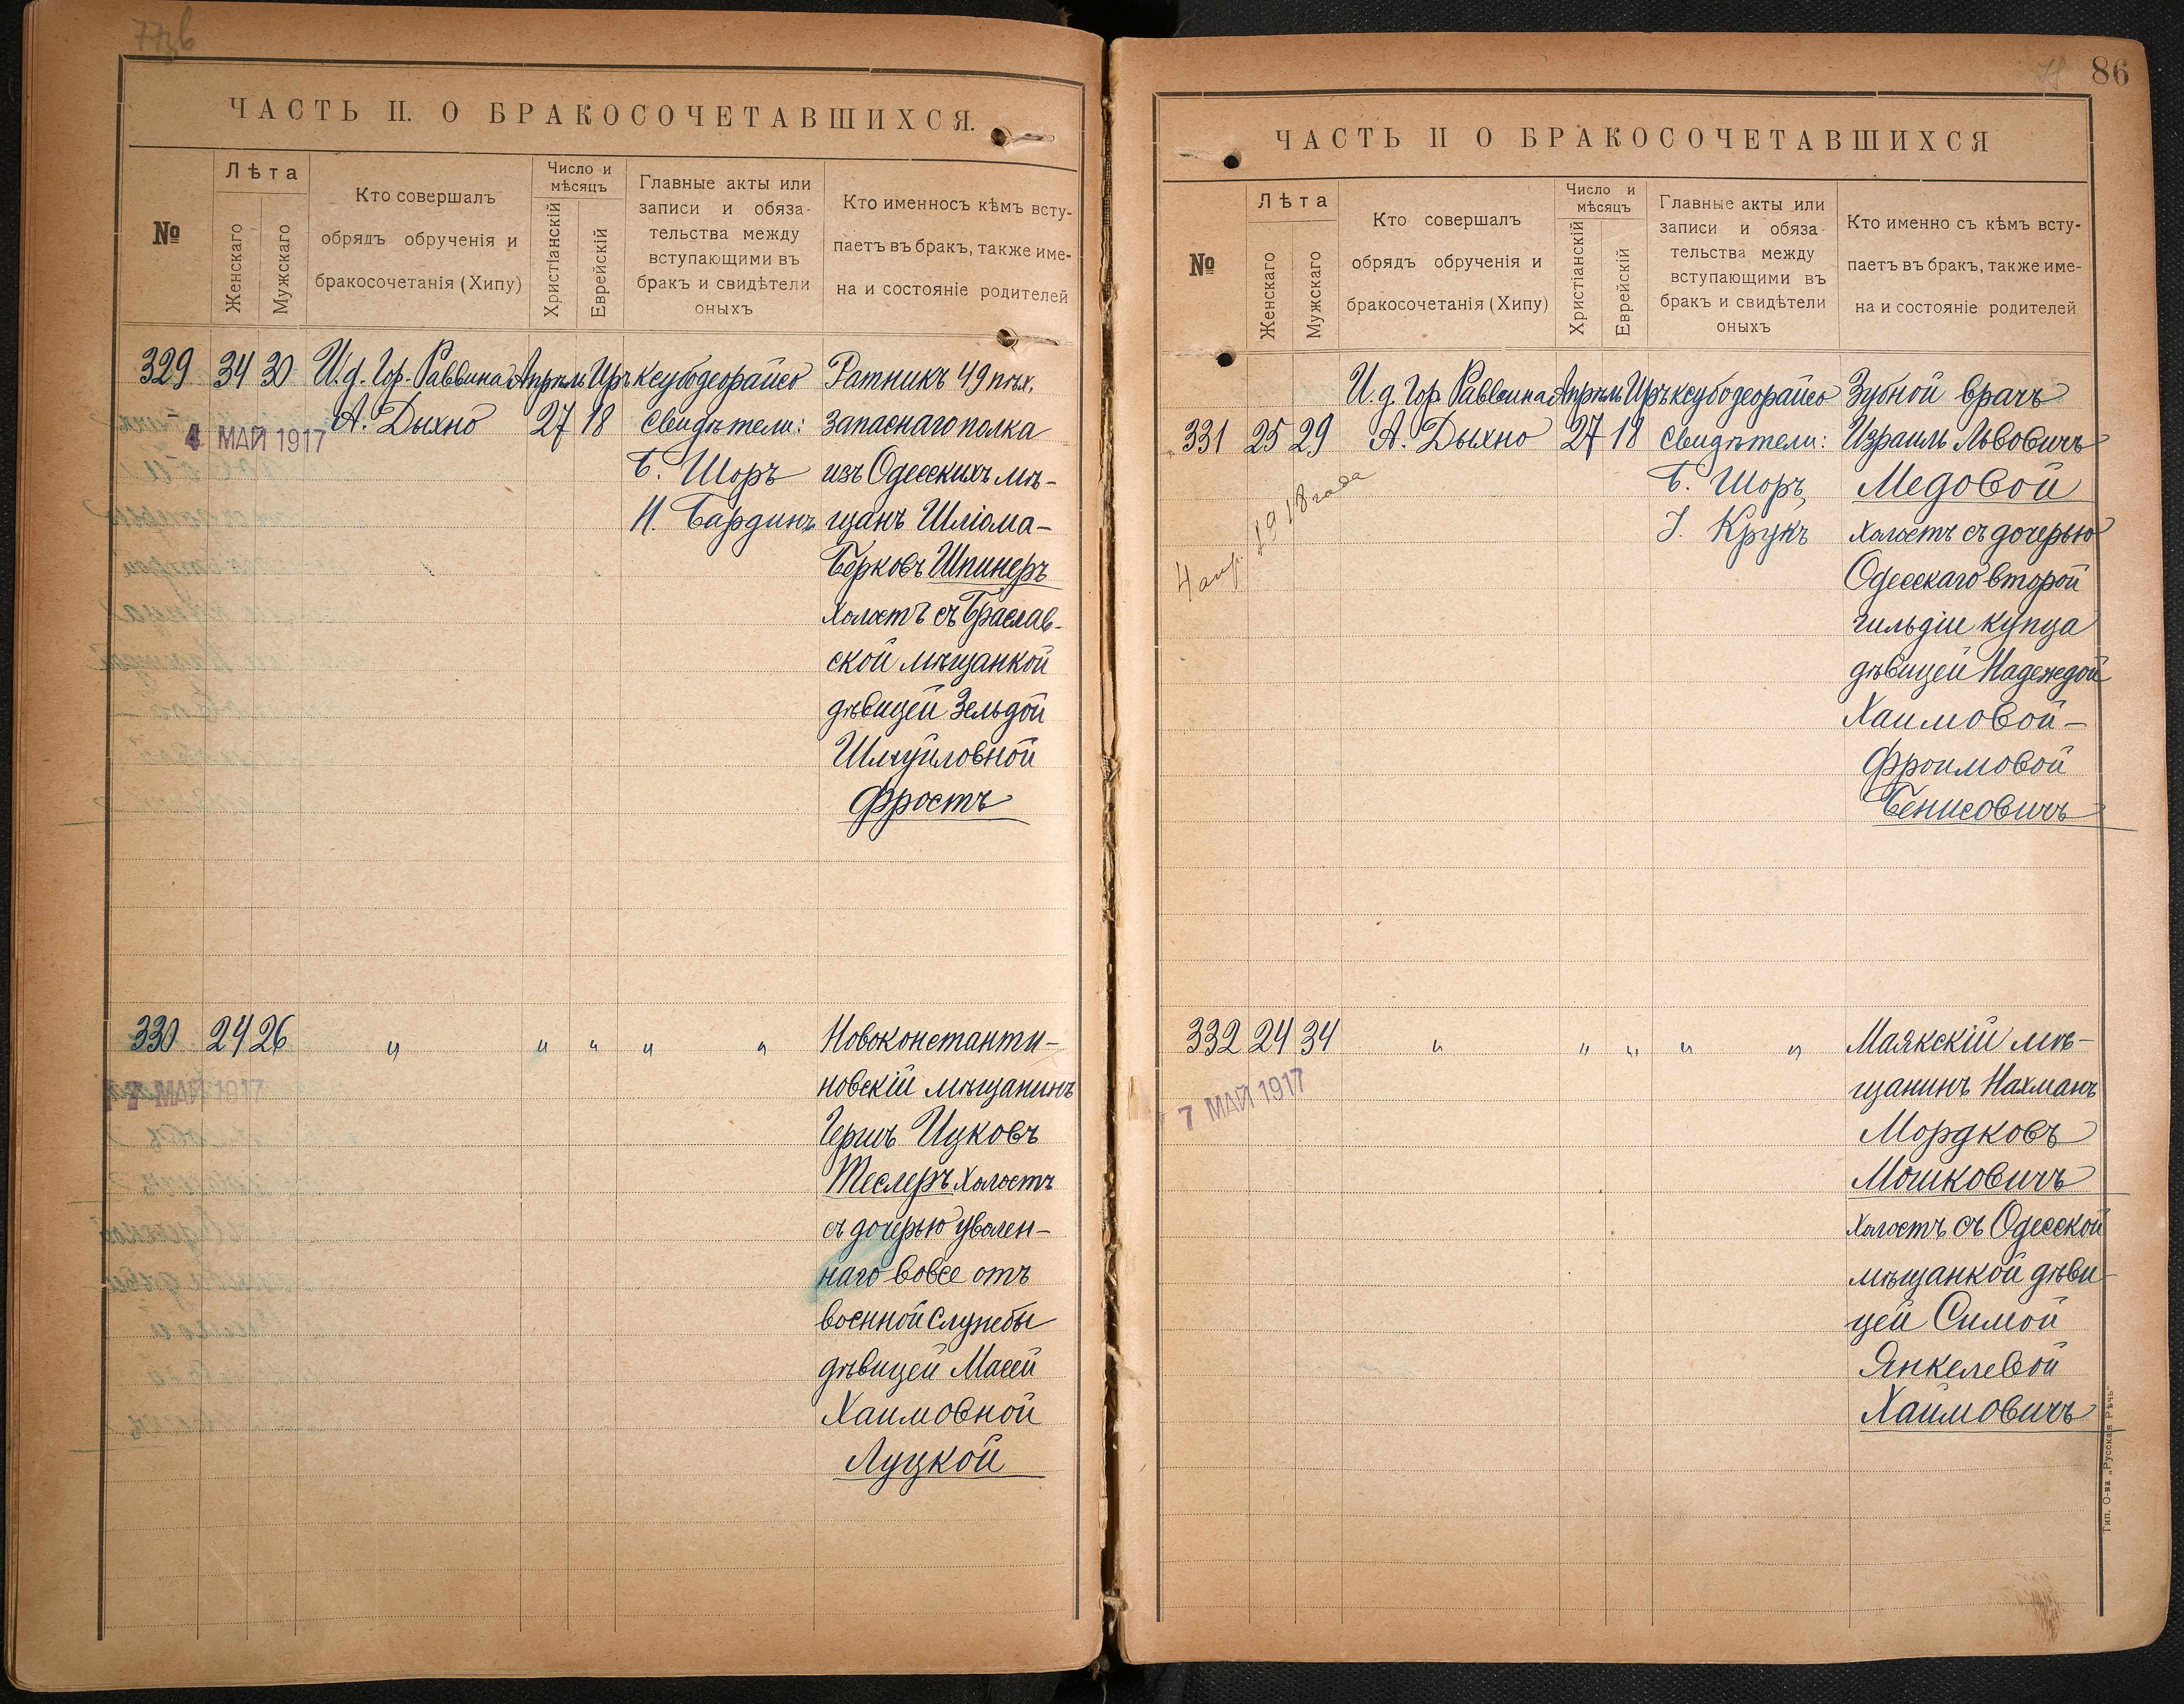 ЧАСТЬ II. О БРАКОСОЧЕТАВШИХСЯ.
№
Лѣта
Женскаго
Мужскаго
Кто совершалъ
обрядъ обрученія и
бракосочетанія (Хипу)
Число и
мѣсяцъ
Христіанскій
Еврейскій
Главные акты или
записи и обяза-
тельства между
вступающими въ
бракъ и свидѣтели
оныхъ
Кто именносъ кѣмъ всту-
паетъ въ бракъ, также име-
на и состояніе родителей
329 34 30 И.д. Гор. Раввина Апрѣль Иръ ксубодеорайсо
А. Дыхно 27 18 Свидѣтели:
4 МАЙ 1917
Б. Шоръ
И. Бардинъ
Ратникъ 49 пѣх.
запаснаго полка
изъ Одесскихъ мѣ-
щанъ Шліома-
Берковъ Шпинеръ
холостъ съ Брацлав-
ской мѣщанкой
дѣвицей Зельдой
Шмуйловной
Фростъ
330 24 26 " " " " "
7 МАЙ 1917
Новоконстанти-
новскій мѣщанинъ
Гершъ Ицковъ
Теслеръ холостъ
съ дочерью уволен-
наго вовсе отъ
военной службы
дѣвицей Масей
Хаимовной
Луцкой
86
ЧАСТЬ II О БРАКОСОЧЕТАВШИХСЯ
№
Лѣта
Женскаго
Мужскаго
Кто совершалъ
обрядъ обрученія и
бракосочетанія (Хипу)
Число и
мѣсяцъ
Христіанскій
Еврейскій
Главные акты или
записи и обяза
тельства между
вступающими въ
бракъ и свидѣтели
оныхъ
Кто именно съ кѣмъ всту-
паетъ въ бракъ, также име-
на и состояніе родителей
И.д. Гор. Раввина Апрѣль Иръ ксубодеорайсо
331 25 29 А. Дыхно 27 18 Свидѣтели:
Б. Шоръ,
І. Крукъ
4 апр. 1918 года
Зубной врачъ
Израиль Львовичъ
Медовой
холостъ съ дочерью
Одесскаго второй
гильдіи купца
дѣвицей Надеждой
Хаимовой-
Фроимовой
Бенисовичъ
332 24 34 " " " " "
7 МАЙ 1917
Маякскій мѣ-
щанинъ Нахманъ
Мордковъ
Мошковичъ
холостъ съ Одесской
мѣщанкой дѣви-
цей Симой
Янкелевой
Хаймовичъ
Тип. О-ва „Русская Рѣчь"